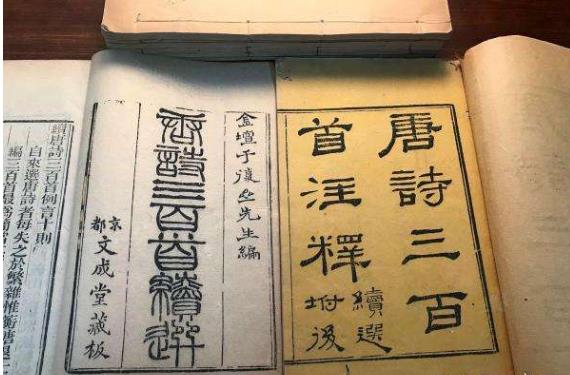 唐詩三百
首注釋
續選
坿後
金壇于復先生編
唐詩三百首續選
京都
文成堂藏板
續唐詩三百首例言十則
自來選唐詩者每失之於繁雜惟蘅塘退
編三百首最爲簡當